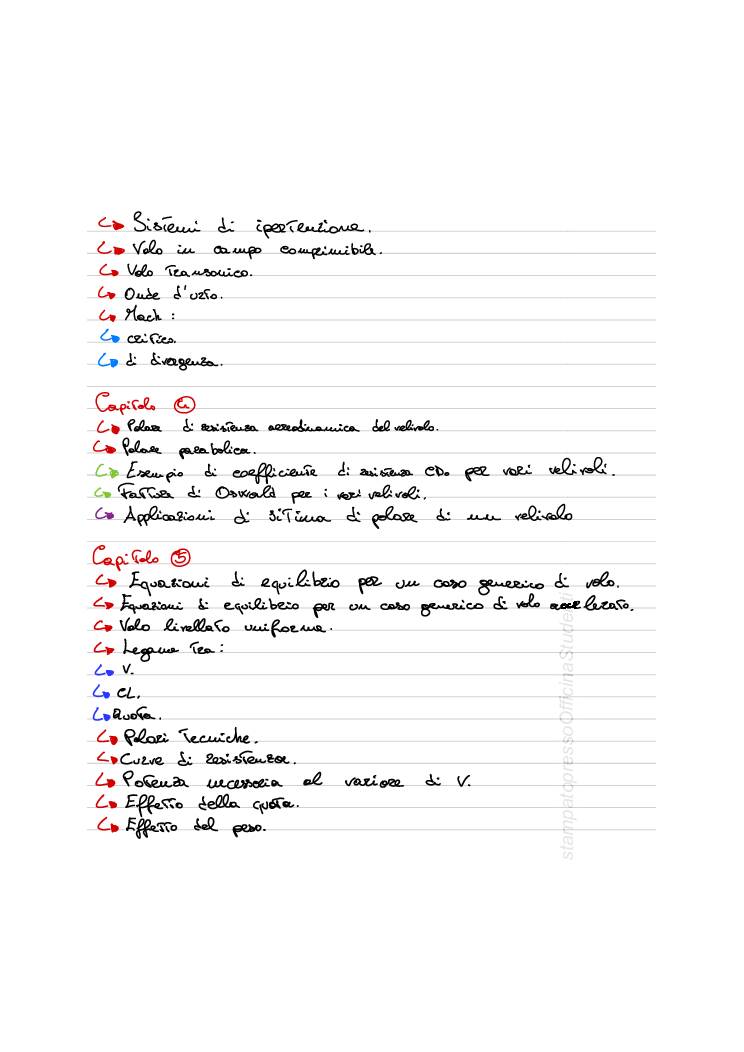 Sistemi di ipertenzione.
Volo in campo comprimibile.
Volo Transonico.
Onde d'urto.
Mach :
critico.
di divergenza.
Capitolo 4
Polare di resistenza aerodinamica del velivolo.
Polare parabolica.
Esempio di coefficiente di resistenza CD₀ per vari velivoli.
Fattore di Oswald per i vari velivoli.
Applicazioni di stima di polare di un velivolo
Capitolo 5
Equazioni di equilibrio per un caso generico di volo.
Equazioni di equilibrio per un caso generico di volo accelerato.
Volo livellato uniforme.
Legame Tra :
V.
CL.
Quota.
Polari Tecniche.
Curve di resistenza.
Potenza necessaria al variare di V.
Effetto della quota.
Effetto del peso.
stampatopressoOfficinaStudenti